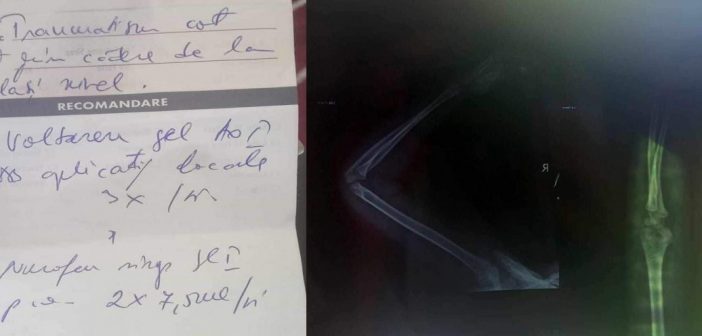 Traumatism cot
prin cădere de la
lași nivel.
RECOMANDARE
Voltaren gel
aplicații locale
3x /zi
Nurofen
2x 7,5ml/zi
R